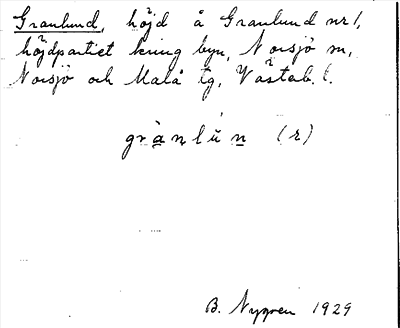 Granlund, höjd å Granlund nr 1,
höjdpartiet kring byn, Norsjö sn,
Norsjö och Malå tg, Västerb. l.
grànlún (r)
B. Nygren 1929